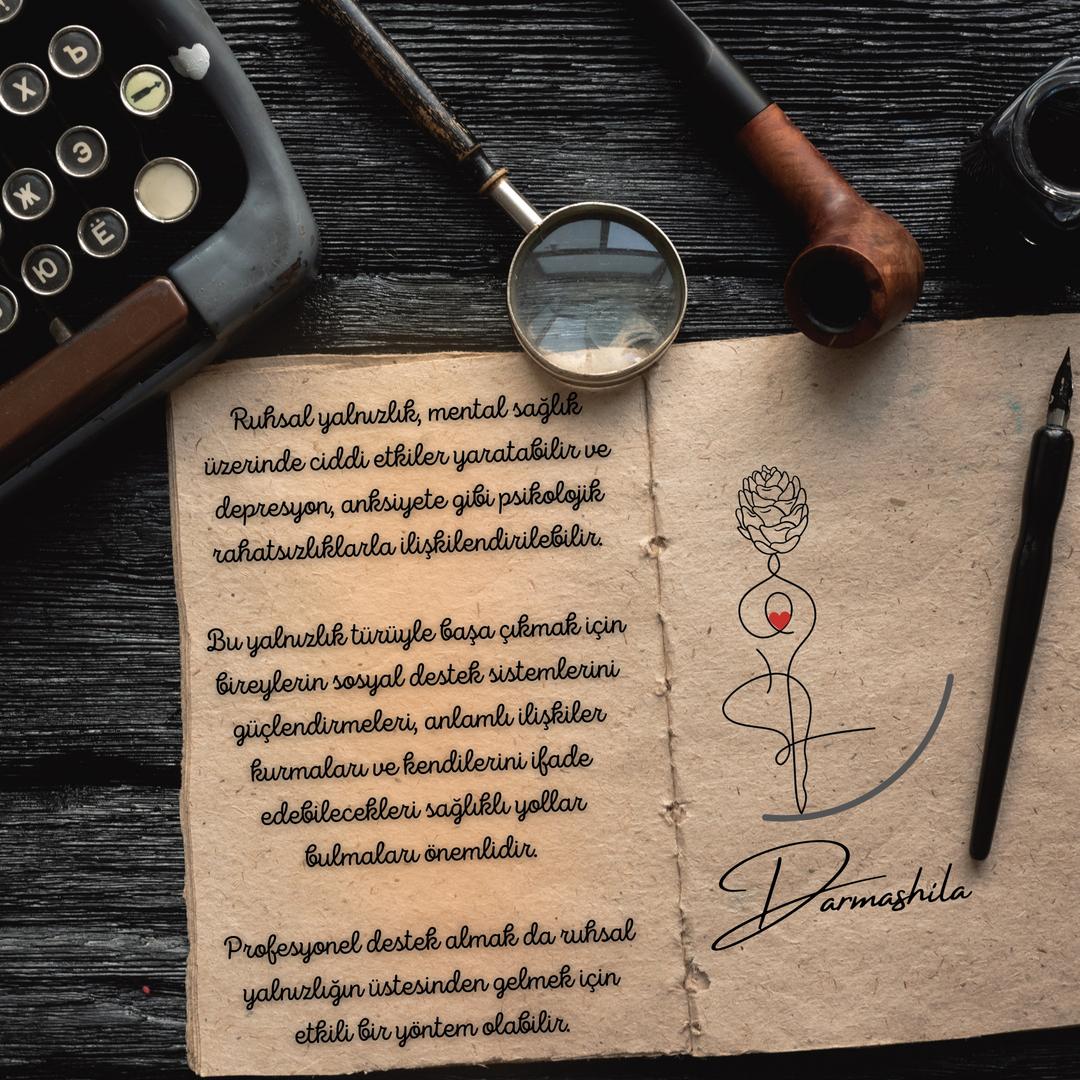 Ъ
Х
Э
Ж
Ё
Ю
Ruhsal yalnızlık, mental sağlık
üzerinde ciddi etkiler yaratabilir ve
depresyon, anksiyete gibi psikolojik
rahatsızlıklarla ilişkilendirilebilir.
Bu yalnızlık türüyle başa çıkmak için
bireylerin sosyal destek sistemlerini
güçlendirmeleri, anlamlı ilişkiler
kurmaları ve kendilerini ifade
edebilecekleri sağlıklı yollar
bulmaları önemlidir.
Profesyonel destek almak da ruhsal
yalnızlığın üstesinden gelmek için
etkili bir yöntem olabilir.
Darmashila